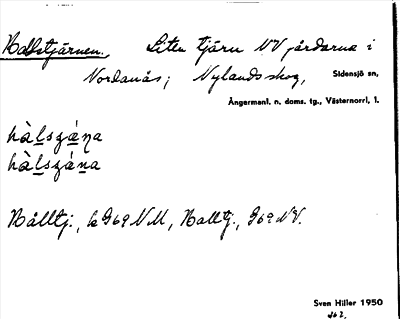 Hallstjärnen. Liten tjärn NV gårdarna i
Nordanås; Nylandsskog, Sidensjö sn,
Ångermanl. n. doms. tg., Västernorrl. l.
hàlszáṇa
hàlszáṇa
Hålltj., k G69 NM, Halltj., G69 NV.
Sven Hiller 1950